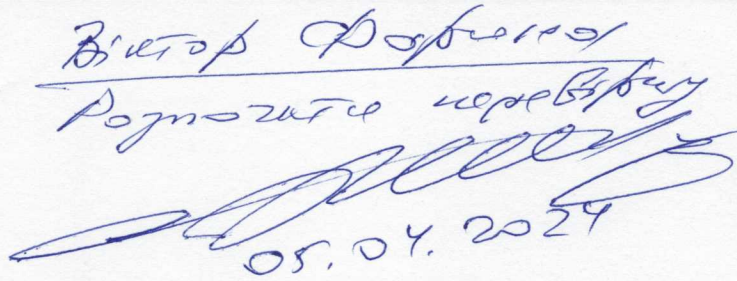 Віктор
Розпочати перевірку
05.04.2024